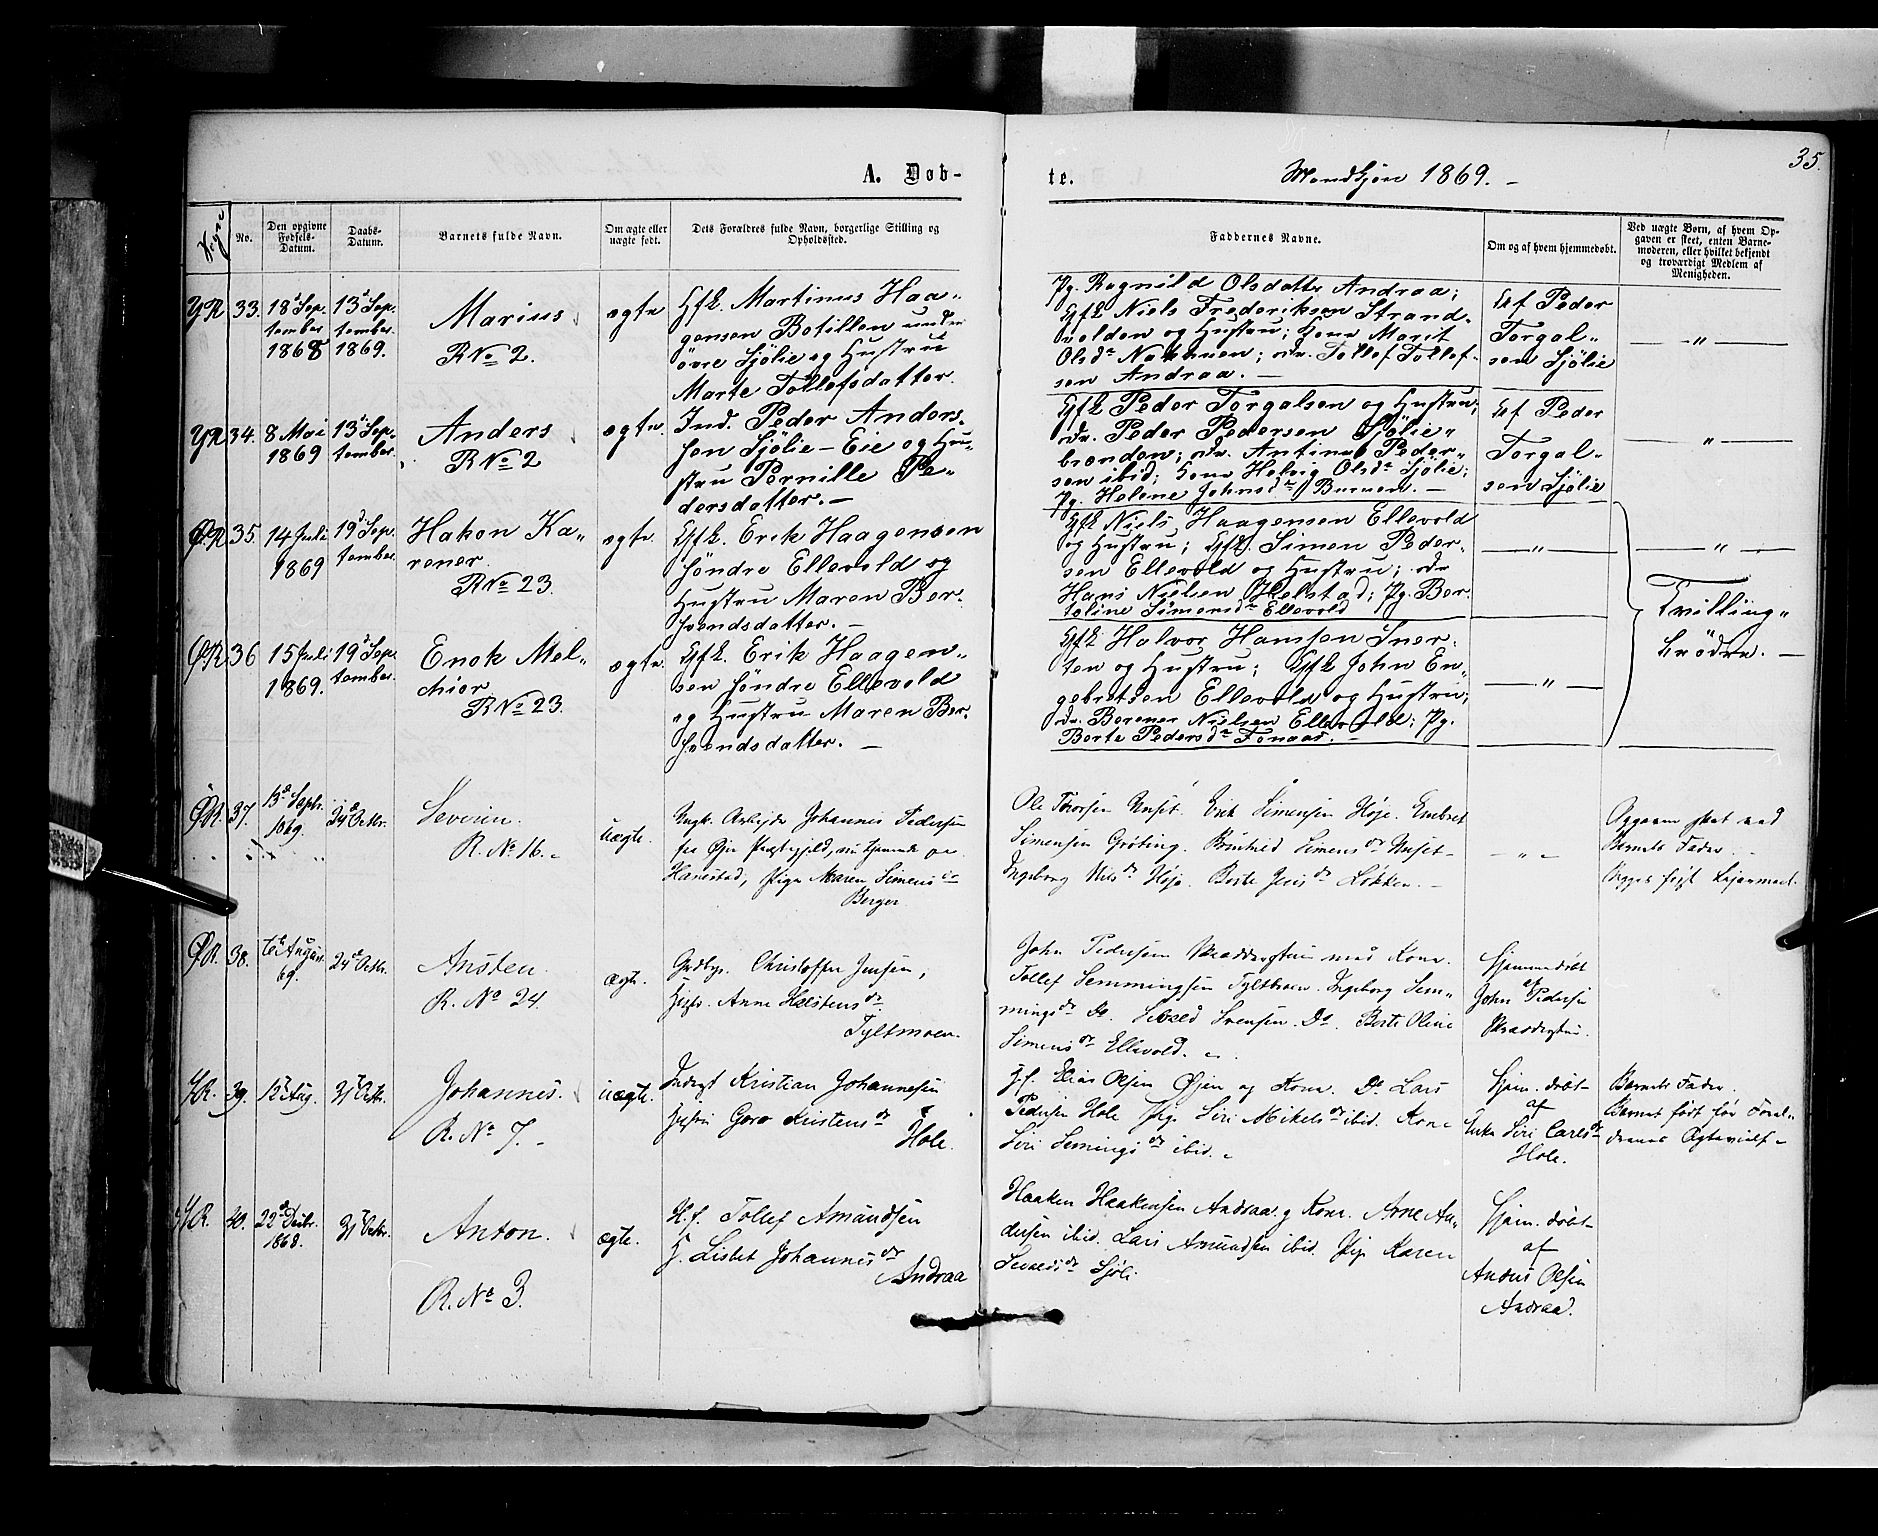 35.
A. Døb-
te.
Mandkjøn 1869. -
No.
Den opgivne
Fødsels-
Datum.
Daabs-
Datum.
Barnets fulde Navn.
Om ægte eller
uægte født.
Dets Forældres fulde Navn, borgerlige Stilling og
Opholdssted.
Faddernes Navne.
Om og af hvem hjemmedøbt.
Ved uægte Børn, af hvem Op-
gaven er skeet, enten Barne-
moderen, eller hvilket bekjendt
og troværdigt Medlem af
Menigheden.
YR
33.
18de Sep.
tember
1868
13de Sep.
tember.
1869.
Marius
R No 2.
ægte
Gfk. Martinus Haa-
gensen Botillen under
övre Sjölie og Hustru
Marte Tollefsdatter.
Pg. Ragnild Olsdatter Andraa;
Gfk Niels Frederiksen Strand-
volden og Hustru; Kone Marit
Olsdr ; Tollef Tollef-
sen Andraa. -
Af Peder
Torgal-
sen Sjölie
- " -
YR
34.
8 Mai
1869
13de Sep.
tember.
Anders
R No 2
ægte.
Ind. Peder Anders.
sen Sjölie-Eie og Hu-
stru Pernille Pe-
dersdatter. -
Gfk Peder Torgalsen og Hustru;
Peder Pedersen Sjölie-
brenden; Antinus Peder-
sen ibid; Kone Helvig Olsdr Sjölie;
Pg. Helene Johnsdr . -
Af Peder
Torgal-
sen Sjölie
- " -
ØR
35
14 Juli
1869
19de Sep.
tember.
Hakon Ka-
rener
R No 23.
ægte.
Gfk. Erik Haagensen
söndre Ellevold og
Hustru Maren Ber.
svendsdatter. -
Gfk Niels Haagensen Ellevold
og Hustru; Gfk. Simen Peder-
sen Ellevold og Hustru;
Hans Nielsen Helstad; Pg. Ber-
toline Simensdr Ellevold
- " -
- " -
Tvilling-
brödre. -
ØR
36
15 Juli
1869.
19de Sep.
tember.
Enok Mel-
chior
R No 23.
ægte.
Gfk. Erik Haagen-
sen söndre Ellevold
og Hustru Maren Ber.
svendsdatter. -
Gfk Halvor Hansen Sner-
ten og Hustru; Gfk John En-
gebretsen Ellevold og Hustru;
Berener Nielsen Ellevold; Pg.
Berte Pedersdr Fonaas. -
- " -
ØR.
37.
13de Septr.
1869.
24de Octbr.
Severin.
R. No 16. -
uægte.
Ungk. Arbejder Johannes Pedersen
fra Præstegjeld, nu tjenende paa
Hanestad, Pige Maren Simensdr
Berger
Ole Thorsen Unset. Erik Simensen Höje. Embret
Simensen Gröting. Simensdr Unset-
Ingeborg Nilsdr Höje. Berte Jensdr Løkken. -
- " -
Opgaven skeet ved
Barnets Fader. -
Begges
ØR.
38.
6te August
69.
24de Octbr.
Austen.
R. No 24.
ægte.
Gaardbr. Christoffer Jensen,
Hustru Anne Halstensdr
Tyltmoen.
John Pedersen med Kone.
Tollef Semmingsen Tyltmoen. Ingeborg Sem-
mingsdr Do. Svensen. Do. Berte Oline
Simensdr Ellevold. -
Hjemmedöbt
af
John Pedersen
YR.
39.
12te Aug.
31te Octbr.
Johannes.
R. No 7. -
uægte.
Inderst Kristian Johannesen
Hustru Goro Kristensdr
Hole.
G.f. Elias Olsen Øjen og Kone. Do Lars
Pedersen Hole Pige Siri Mikelsdr ibid. Kone
Siri Semingsdr ibid. -
Hjem. döbt-
af
Enke Siri Carlsdr
Hole.
Barnets Fader.
Barnet født før Foræl-
drenes Ægteviels -
YR.
40.
22de Decbr.
1868.
31te Octbr.
Anton.
R. No 3.
ægte.
H.f. Tollef Amundsen
H. Lisbet Johannesdr
Andraa
Haaken Haakensen Andraa og Kone. Arne An-
dersen ibid. Lars Amundsen ibid. Pige Karen
Sjöli
Hjem. döbt-
af
Anders Olsen
Andraa.